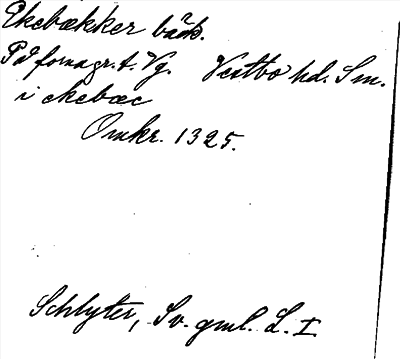 Ekebækker bäck.
På fornagr. t. Vg. Vestbo hd. Sm.
i ekebæc
Omkr. 1325.
Schlyter, Sv. gml. L. I.